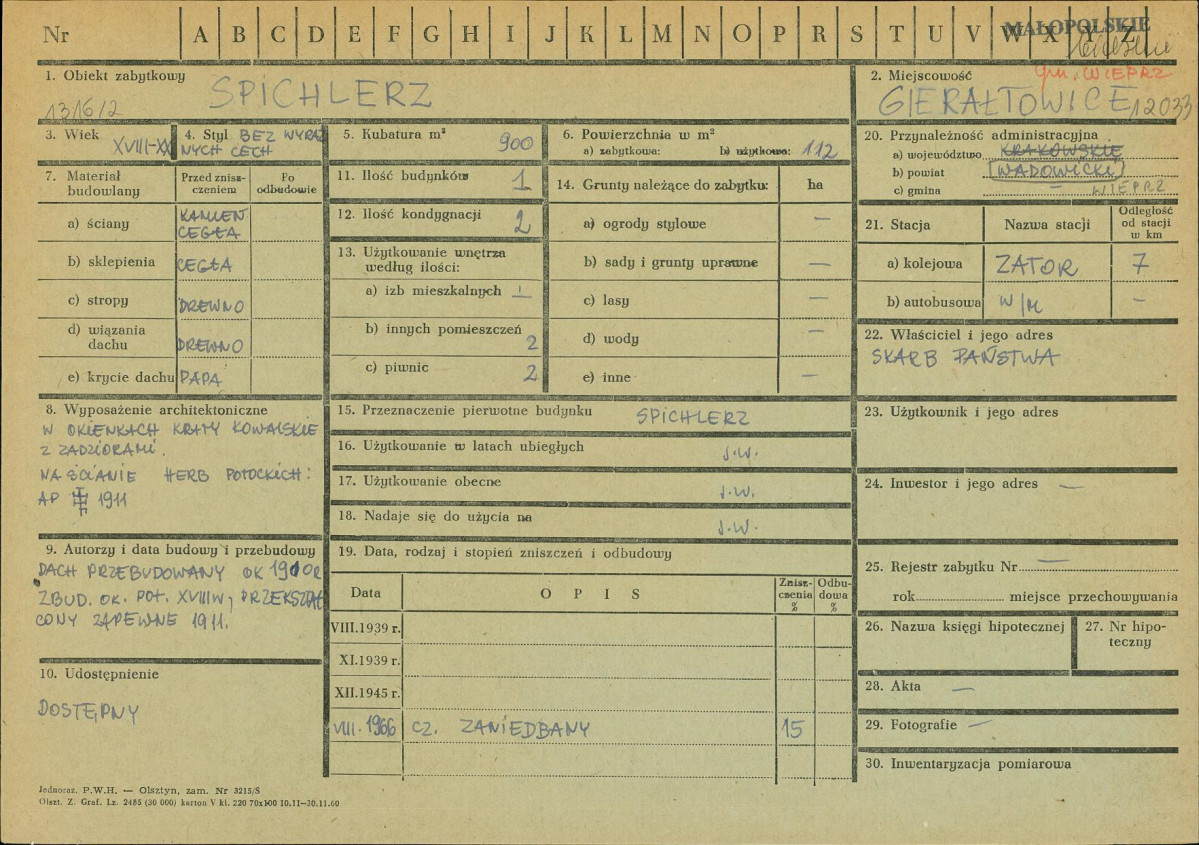 Nr A B C D E F G H I J K L M N O P R S T U V W X Y Z
MAŁOPOLSKIE
1. Obiekt zabytkowy
SPICHLERZ
1316/2
2. Miejscowość
gm. WIEPRZ
GIERAŁTOWICE 12033
3. Wiek XVIII-XX
4. Styl BEZ WYRAŹ
NYCH CECH
5. Kubatura m³ 900
6. Powierzchnia w m²
a) zabytkowa: b) użytkowa: 112
7. Materiał budowlany
Przed zniszczeniem
Po odbudowie
a) ściany KAMIEŃ CEGŁA
b) sklepienia CEGŁA
c) stropy DREWNO
d) wiązania dachu DREWNO
e) krycie dachu PAPA
8. Wyposażenie architektoniczne
W OKIENKACH KRATY KOWALSKIE
Z ZADZIORAMI.
NA ŚCIANIE HERB POTOCKICH:
AP 1911
9. Autorzy i data budowy i przebudowy
DACH PRZEBUDOWANY OK 1910R
ZBUD. OK. POŁ. XVIIIW, PRZEKSZTAŁ
CONY ZAPEWNE 1911.
10. Udostępnienie
DOSTĘPNY
11. Ilość budynków 1
12. Ilość kondygnacji 2
13. Użytkowanie wnętrza
według ilości:
a) izb mieszkalnych 1
b) innych pomieszczeń 2
c) piwnic 2
14. Grunty należące do zabytku: ha
a) ogrody stylowe —
b) sady i grunty uprawne —
c) lasy —
d) wody —
e) inne —
15. Przeznaczenie pierwotne budynku SPICHLERZ
16. Użytkowanie w latach ubiegłych J.W.
17. Użytkowanie obecne J.W.
18. Nadaje się do użycia na J.W.
19. Data, rodzaj i stopień zniszczeń i odbudowy
Data OPIS Zniszczenia % Odbudowa %
VIII.1939 r.
XI.1939 r.
XII.1945 r.
VIII.1966 CZ. ZANIEDBANY 15
20. Przynależność administracyjna
a) województwo KRAKOWSKIE
b) powiat WADOWICKI
c) gmina — WIEPRZ
21. Stacja Nazwa stacji Odległość od stacji w km
a) kolejowa ZATOR 7
b) autobusowa W/M —
22. Właściciel i jego adres
SKARB PAŃSTWA
23. Użytkownik i jego adres
24. Inwestor i jego adres —
25. Rejestr zabytku Nr —
rok miejsce przechowywania
26. Nazwa księgi hipotecznej
27. Nr hipoteczny
28. Akta —
29. Fotografie —
30. Inwentaryzacja pomiarowa
Jednoraz. P.W.H. — Olsztyn, zam. Nr 3215/S
Olszt. Z. Graf. Lz. 2485 (30 000) karton V kl. 220 70x100 10.11—30.11.60